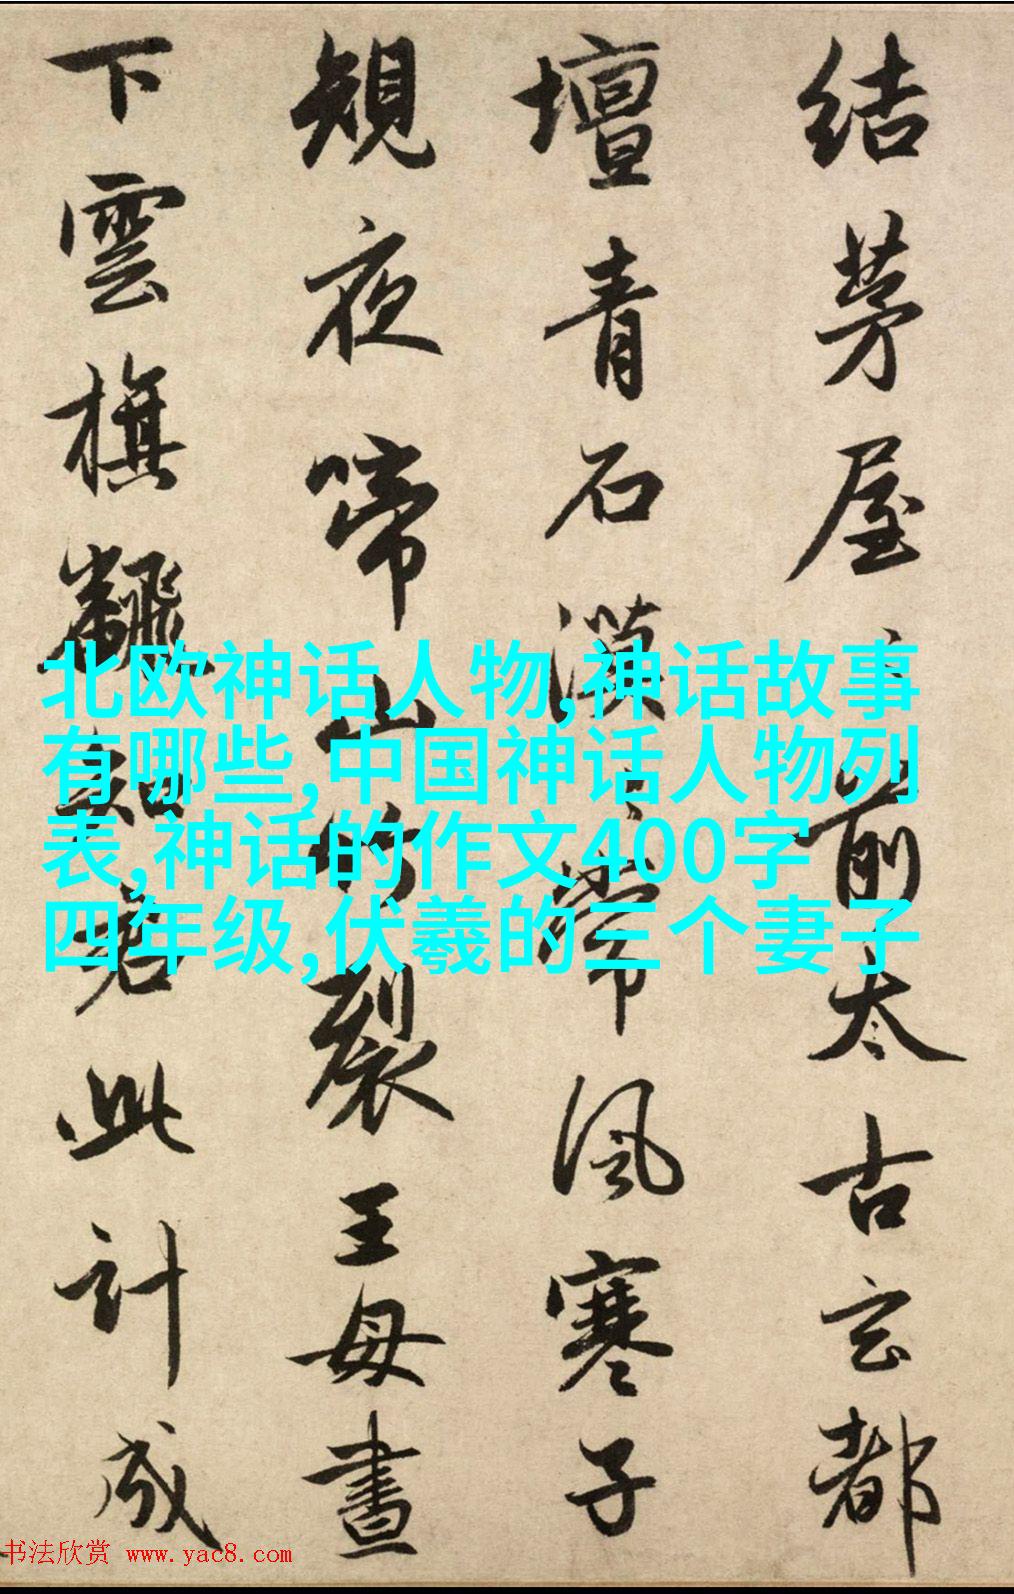 结茅屋前太古玄都
壇青石漠〻常風寒子
規夜啼山竹裂王母晝
下雲旗飜知君此計成
北欧神话人物,神话故事
有哪些,中国神话人物列
表,神话的作文400字
四年级,伏羲的三个妻子
书法欣赏 www.yac8.com